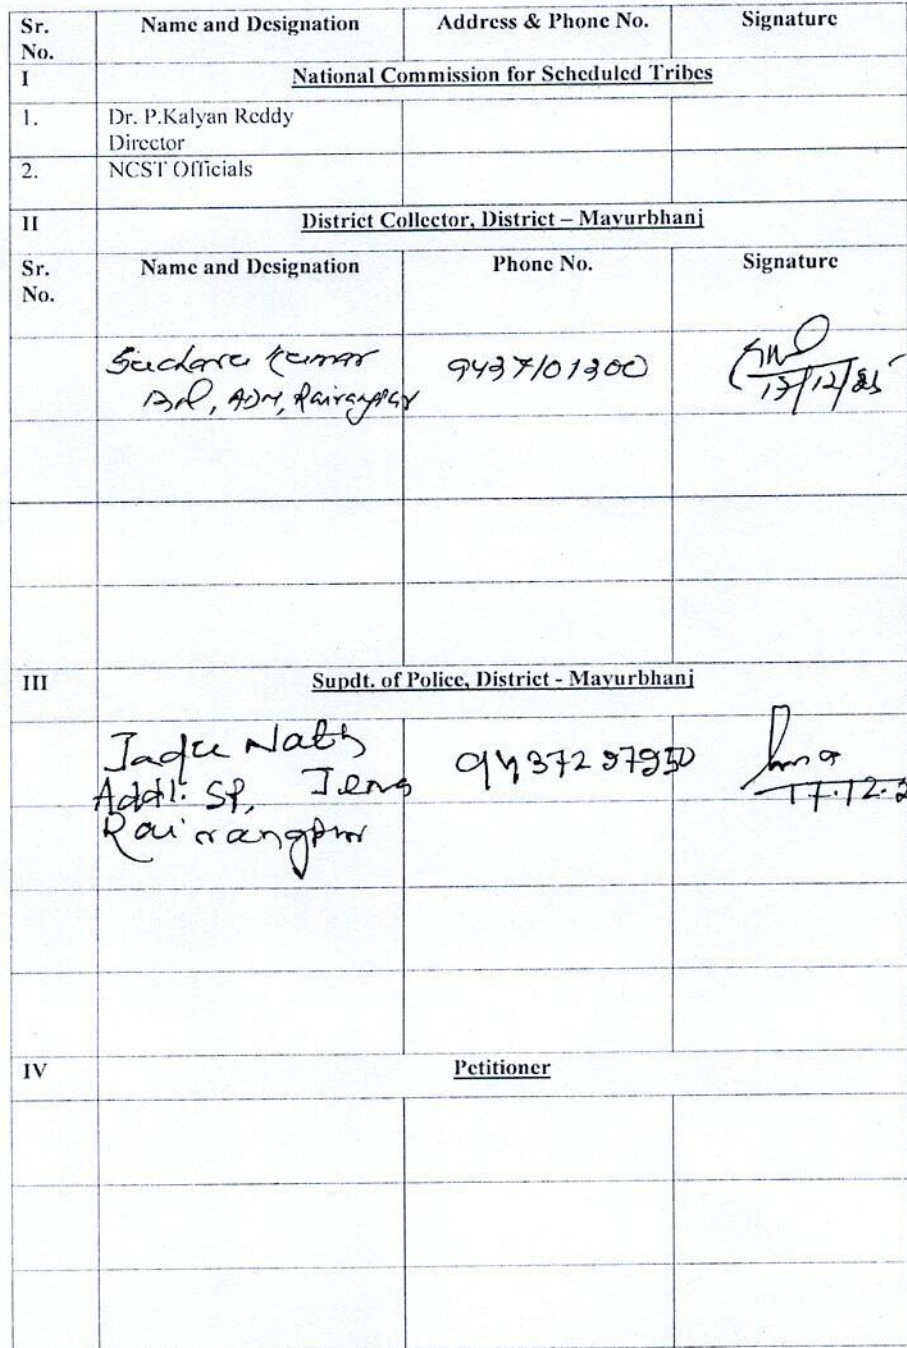 Sr. No. Name and Designation Address & Phone No. Signature
I National Commission for Scheduled Tribes
1. Dr. P.Kalyan Reddy
Director
2. NCST Officials
II District Collector, District – Mayurbhanj
Sr. No. Name and Designation Phone No. Signature
Kumar 9437101300
ADM, Rairangpur
III Supdt. of Police, District - Mayurbhanj
Nath
Addl. SP, Jena
Rairangpur
17.12.2
IV Petitioner